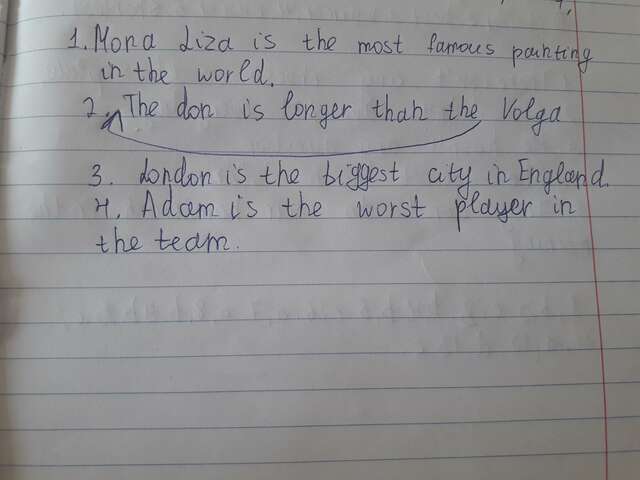 1. Mona Liza is the most famous painting
in the world.
2. The don is longer than the Volga
3. London is the biggest city in England.
4. Adam is the worst player in
the team.